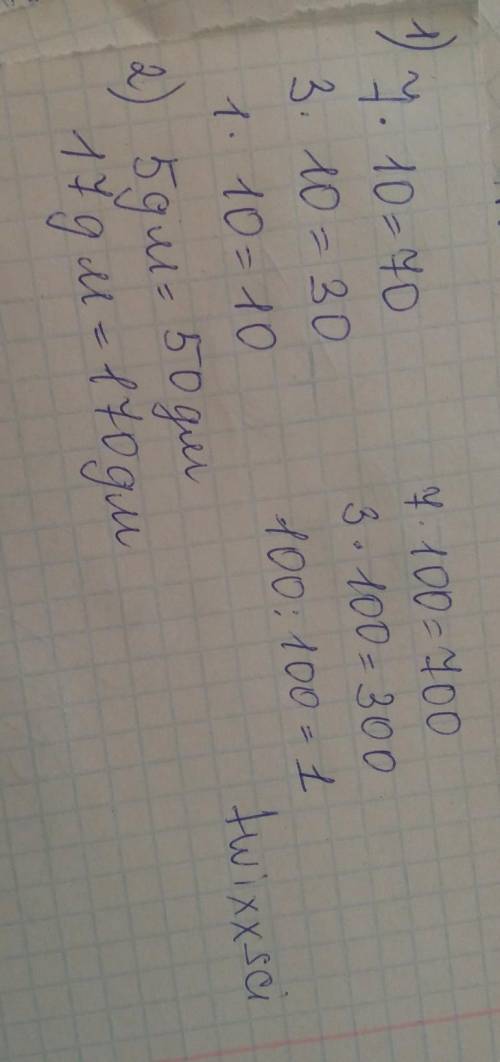 1) 7 · 10 = 70
3 · 10 = 30
1 · 10 = 10
7 · 100 = 700
3 · 100 = 300
100 : 100 = 1
2) 5дм = 50дм
17дм = 170дм
twixxsci